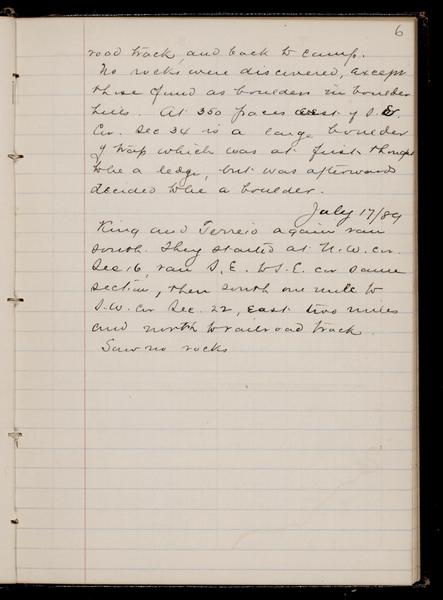 6
road track, and back to camp.
No rocks were discovered, except
those found as boulders in boulder
hills. At 350 paces west of S.E.
Cor. Sec 34 is a large boulder
of trap which was at first thought
to be a ledge, but was afterwards
decided to be a boulder.
July 17/89
King and Ferreio again ran
south. They started at N.W. cor.
Sec. 16, ran S.E. to S.E. cor same
section, then south one mile to
S.W. Cor Sec. 22, east two miles
and north to railroad track
Saw no rocks